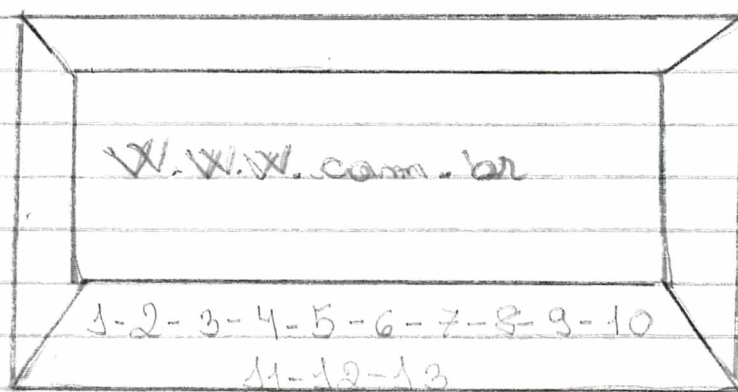 W.W.W.com.br
1-2-3-4-5-6-7-8-9-10
11-12-13